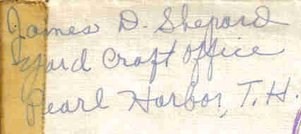 James D. Shepard
Yard Craft Office
Pearl Harbor, T.H.